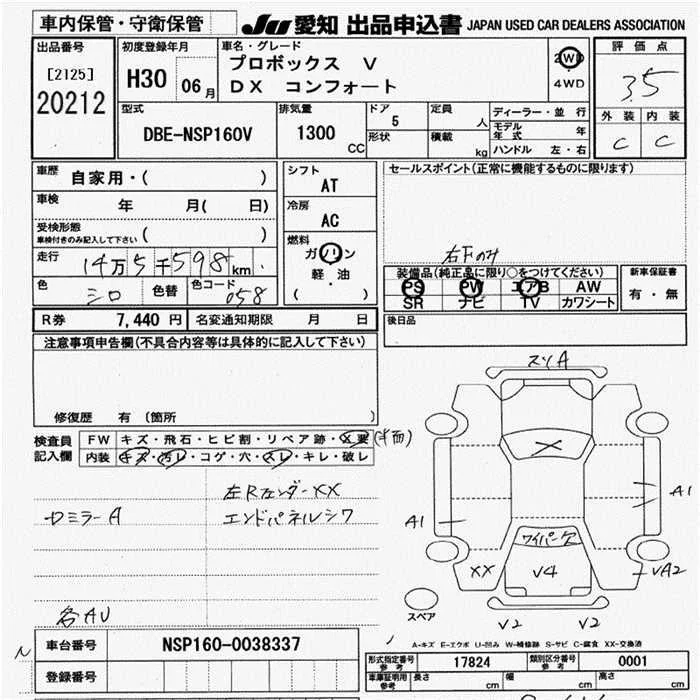 車内保管・守衛保管
JU 愛知 出品申込書 JAPAN USED CAR DEALERS ASSOCIATION
出品番号
[2125]
20212
初度登録年月
H30 06月
車名・グレード
プロボックス V
DX コンフォート
2WD
4WD
評価点
3.5
外装 内装
C C
型式
DBE-NSP160V
排気量
1300
CC
ドア
5
形状
定員
人
積載
kg
ディーラー・並行
モデル年式 年
ハンドル 左・右
車歴 自家用・( )
車検 年 月( 日)
受検形態
車検付きのみ記入して下さい ( )
走行 14万5千598km
色 シロ 色替 色コード 058
シフト
AT
冷房
AC
燃料
ガソリン
軽・油
( )
セールスポイント(正常に機能するものに限ります)
右Fのみ
装備品(純正品に限り○をつけてください)
PS PW エアB AW
SR ナビ TV カワシート
新車保証書
有・無
R券 7,440 円 名変通知期限 月 日
後日品
注意事項申告欄(不具合内容等は具体的に記入して下さい)
修復歴 有 (箇所
検査員
記入欄
FW キズ・飛石・ヒビ割・リペア跡・X要
内装 キズ・汚レ・コゲ・穴・スレ・キレ・破レ
左Rフェンダー XX
ロミラーA エンドパネルシワ
各AU
スソA
A1
A1
ワイパー欠
XX
V4
VA2
スペア
V2 V2
A-キズ E-エクボ U-凹み W-補修跡 S-サビ C-腐食 XX-交換済
車台番号 NSP160-0038337
登録番号
形式指定番号
参考
17824
類別区分番号
参考
0001
車庫証明用
参考
長さ cm 幅 cm 高さ cm